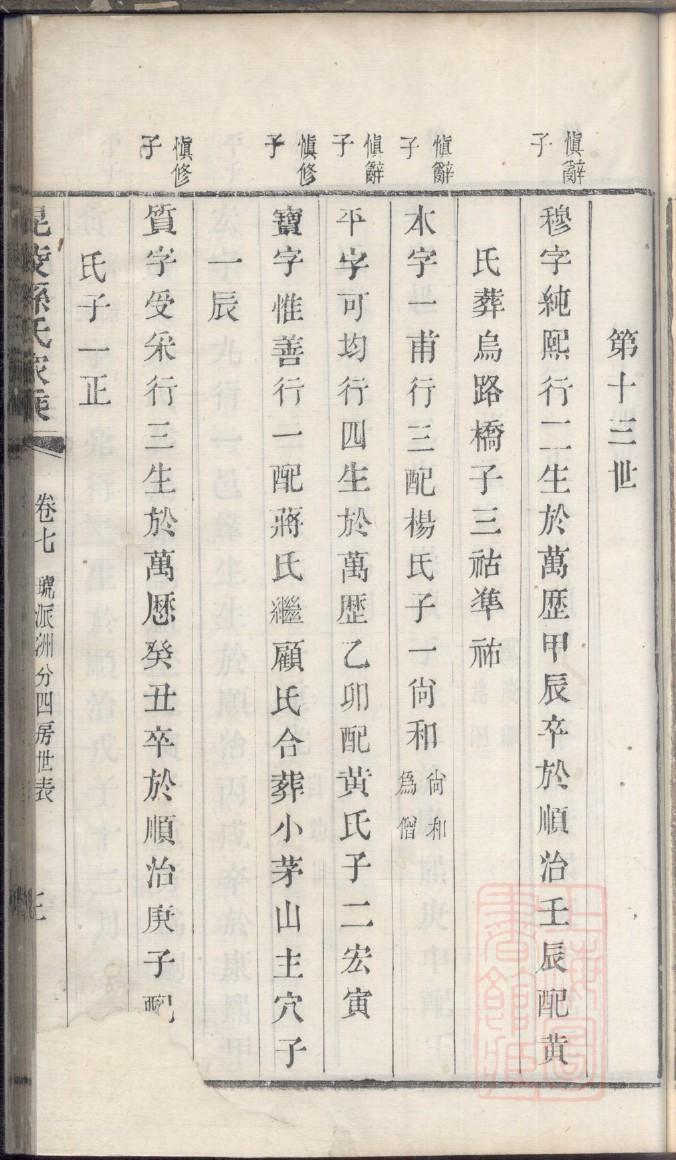 第十三世
慎辭子
穆字純熙行二生於萬歷甲辰卒於順治壬辰配黄
氏葬烏路橋子三祜準祐
慎辭子
本字一甫行三配楊氏子一尙和尙和爲僧
慎辭子
平字可均行四生於萬歷乙卯配黄氏子二宏寅
慎修子
寶字惟善行一配蔣氏繼顧氏合葬小茅山主穴子
一辰
慎修子
質字受采行三生於萬厯癸丑卒於順治庚子配
氏子一正
毘陵孫氏家乘
卷七
琥派洲分四房世表